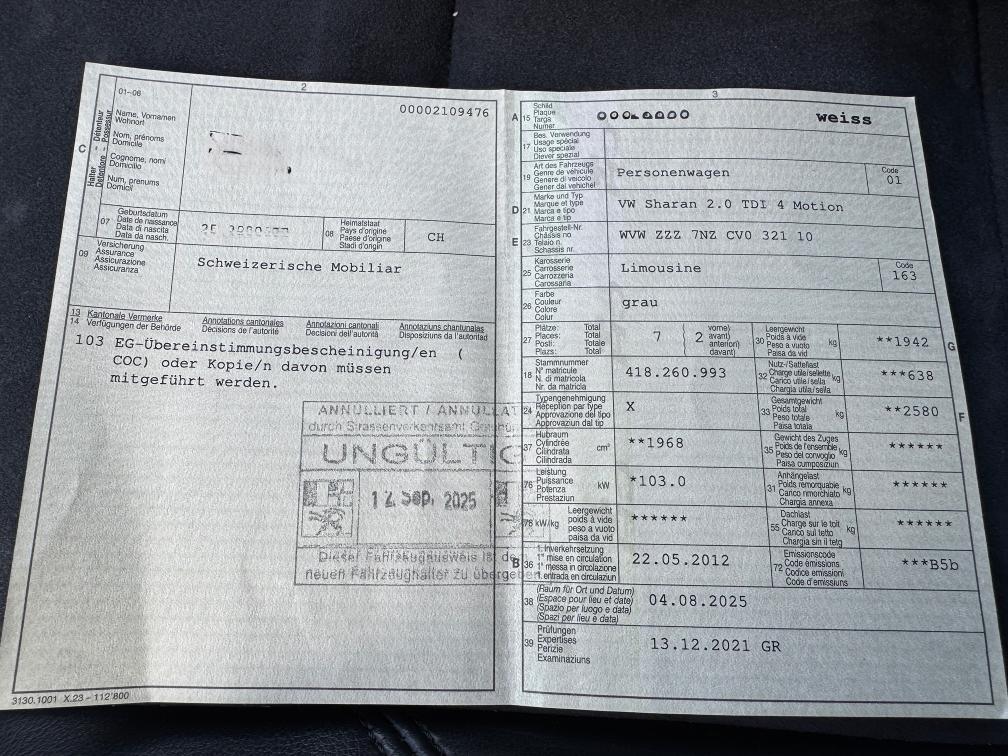 2
01-06
00002109476
C
Halter Détenteur
Detentore Possessur
Name, Vornamen
Wohnort
Nom, prénoms
Domicile
Cognome, nomi
Domicilio
Num, prenums
Domicil
07
Geburtsdatum
Date de naissance
Data di nascita
Data da nasch.
08
Heimatstaat
Pays d'origine
Paese d'origine
Stadi d'origin
CH
09
Versicherung
Assurance
Assicurazione
Assicuranza
Schweizerische Mobiliar
13 Kantonale Vermerke Annotations cantonales Annotazioni cantonali Annotaziuns chantunalas
14 Verfügungen der Behörde Décisions de l'autorité Decisioni dell'autorità Disposiziuns da l'autoritad
103 EG-Übereinstimmungsbescheinigung/en (
COC) oder Kopie/n davon müssen
mitgeführt werden.
ANNULLIERT / ANNULLAT
durch Strassenverkehrsamt
UNGÜLTIG
12 Sep. 2025
Dieser Fahrzeugausweis ist dem
neuen Fahrzeughalter zu übergeben.
3130.1001 X.23 - 112'800
3
A 15
Schild
Plaque
Targa
Numer
weiss
17
Bes. Verwendung
Usage spécial
Uso speciale
Diever spezial
19
Art des Fahrzeugs
Genre de véhicule
Genere di veicolo
Gener dal vehichel
Personenwagen
Code
01
D 21
Marke und Typ
Marque et type
Marca e tipo
Marca e tip
VW Sharan 2.0 TDI 4 Motion
E 23
Fahrgestell-Nr.
Châssis no
Telaio n.
Schassis nr.
WVW ZZZ 7NZ CV0 321 10
25
Karosserie
Carrosserie
Carrozzeria
Carossaria
Limousine
Code
163
26
Farbe
Couleur
Colore
Colur
grau
27
Plätze: Total
Places: Total
Posti: Totale
Plazs: Total
7 ( 2
vorne)
avant)
anteriori)
davant)
30
Leergewicht
Poids à vide
Peso a vuoto
Paisa da vid
kg
**1942
G
18
Stammnummer
N° matricule
N. di matricola
Nr. da matricla
418.260.993
32
Nutz-/Sattellast
Charge utile/sellette
Carico utile/sella
Chargia utila/sella
kg
***638
24
Typengenehmigung
Réception par type
Approvazione del tipo
Approvaziun dal tip
X
33
Gesamtgewicht
Poids total
Peso totale
Paisa totala
kg
**2580
F
37
Hubraum
Cylindrée
Cilindrata
Cilindrada
cm³
**1968
35
Gewicht des Zuges
Poids de l'ensemble
Peso del convoglio
Paisa cumposiziun
kg
******
76
Leistung
Puissance
Potenza
Prestaziun
kW
*103.0
31
Anhängelast
Poids remorquable
Carico rimorchiato
Chargia annexa
kg
******
78 kW/kg
Leergewicht
poids à vide
peso a vuoto
paisa da vid
******
55
Dachlast
Charge sur le toit
Carico sul tetto
Chargia sin il tetg
kg
******
B 36
1. Inverkehrsetzung
1re mise en circulation
1a messa in circolazione
1. entrada en circulaziun
22.05.2012
72
Emissionscode
Code émissions
Codice emissioni
Code d'emissiuns
***B5b
38
(Raum für Ort und Datum)
(Espace pour lieu et date)
(Spazio per luogo e data)
(Spazi per lieu e data)
04.08.2025
39
Prüfungen
Expertises
Perizie
Examinaziuns
13.12.2021 GR